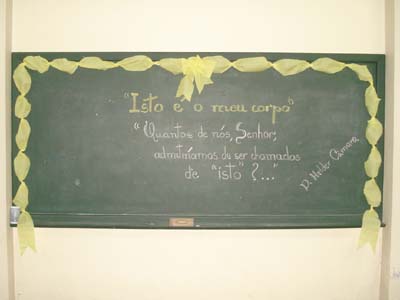 "Isto é o meu corpo"
"Quantos de nós, Senhor,
admitiríamos de ser chamados
de "isto"?..."
D. Helder Câmara